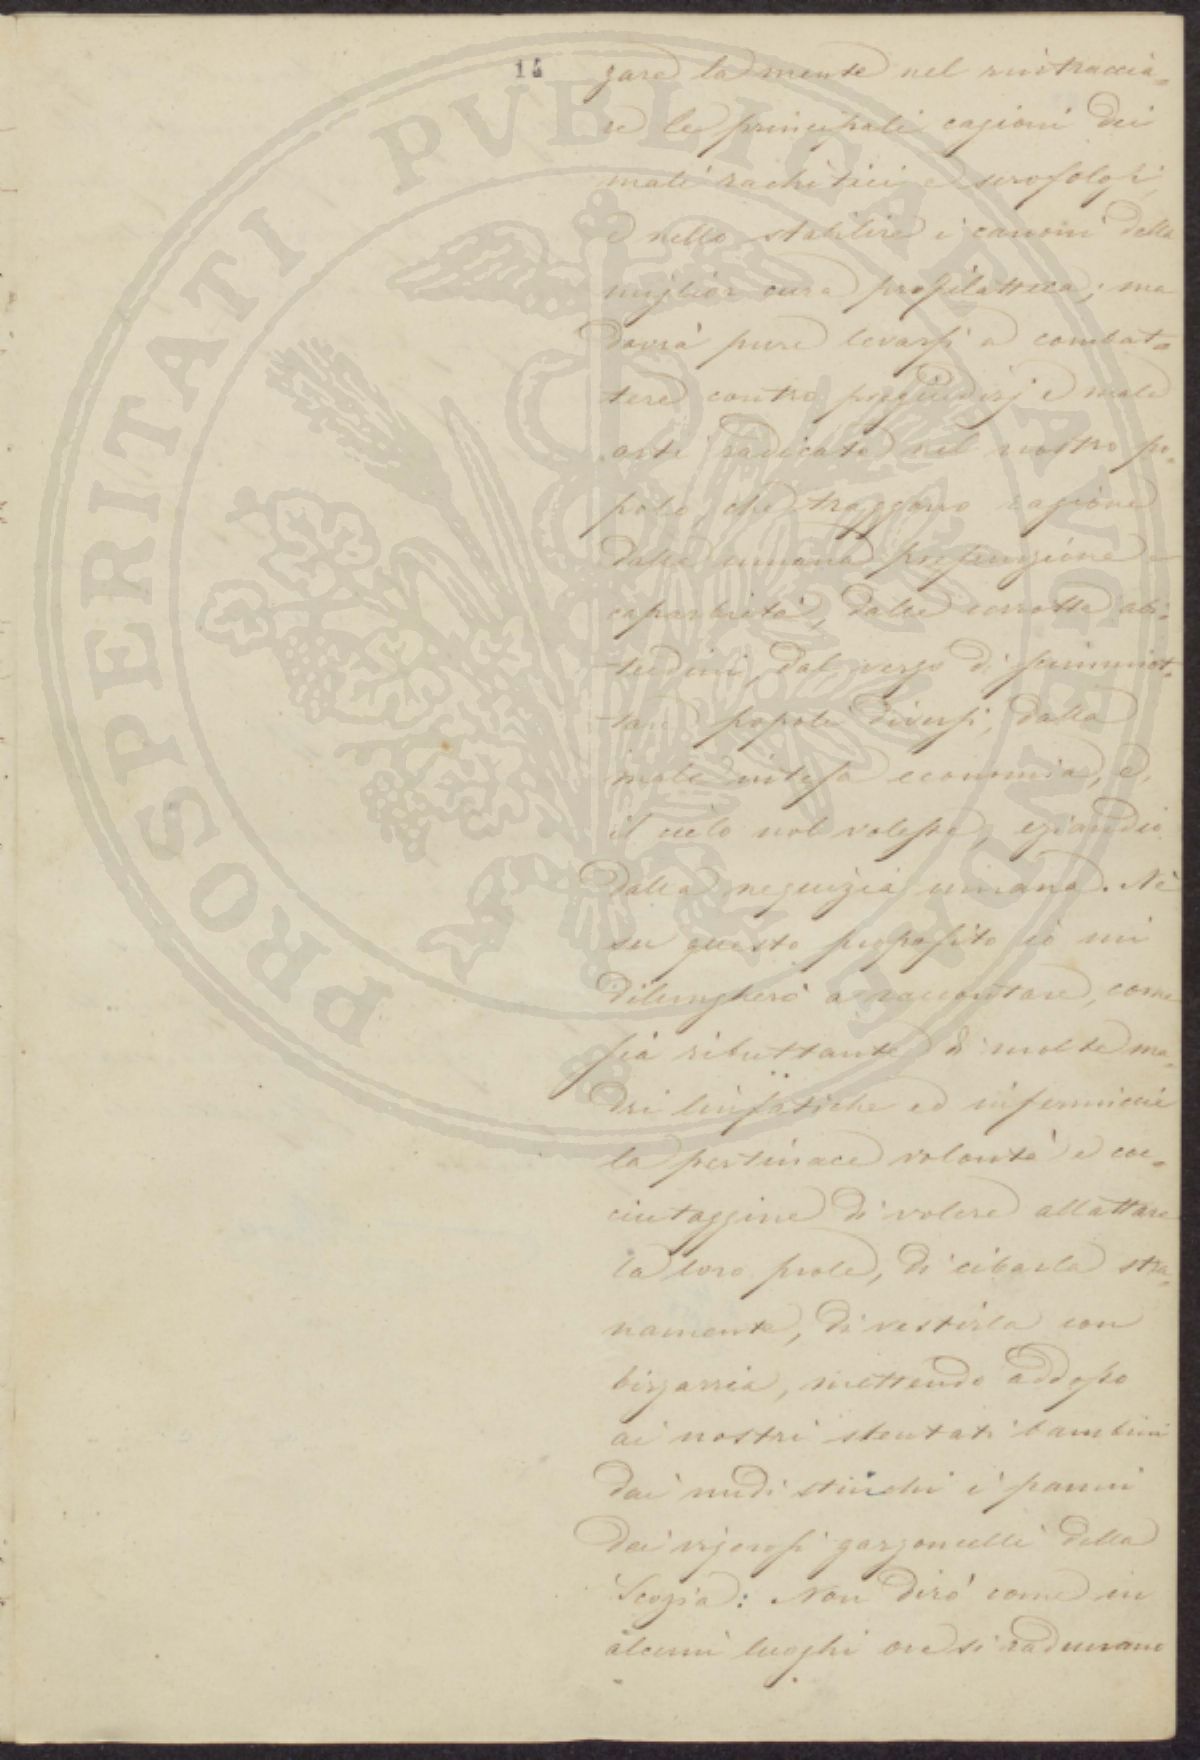 14
gare la mente nel rintraccia=
re le principali cagioni dei
mali rachitici e scrofolosi,
e nello stabilire i canoni della
miglior cura profilattica; ma
dovrà pure levarsi a combat=
tere contro pregiudizj e male
arti radicate nel nostro po=
polo, che traggono ragione
dalla umana prosunzione e
caparbietà, dalle corrotte abi=
tudini, dal vezzo di scimmiot=
tare popoli diversi, dalla
male intesa economia, e,
il cielo nol volesse, eziandio
dalla nequizia umana. Nè
su questo proposito io mi
dilungherò a raccontare, come
sia ributtante di molte ma=
dri linfatiche ed infermiccie
la pertinace volontà e coc=
ciutaggine di volere allattare
la loro prole, di cibarla stra=
namente, di vestirla con
bizzarria, mettendo addosso
ai nostri stentati bambini
dai nudi stinchi i panni
dei vigorosi garzoncelli della
Scozia: Non dirò come in
alcuni luoghi ove si radunano
PROSPERITATI PVBLICAE AVGENDAE